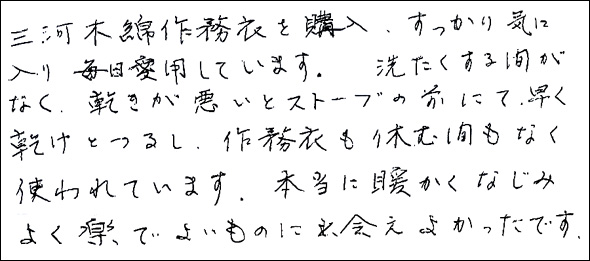 三河木綿作務衣を購入、すっかり気に
入り毎日愛用しています。 洗たくする間が
なく、乾きが悪いとストーブの前にて、早く
乾けとつるし、作務衣も休む間もなく
使われています。本当に暖かくなじみ
よく楽で よいものに出会えよかったです。